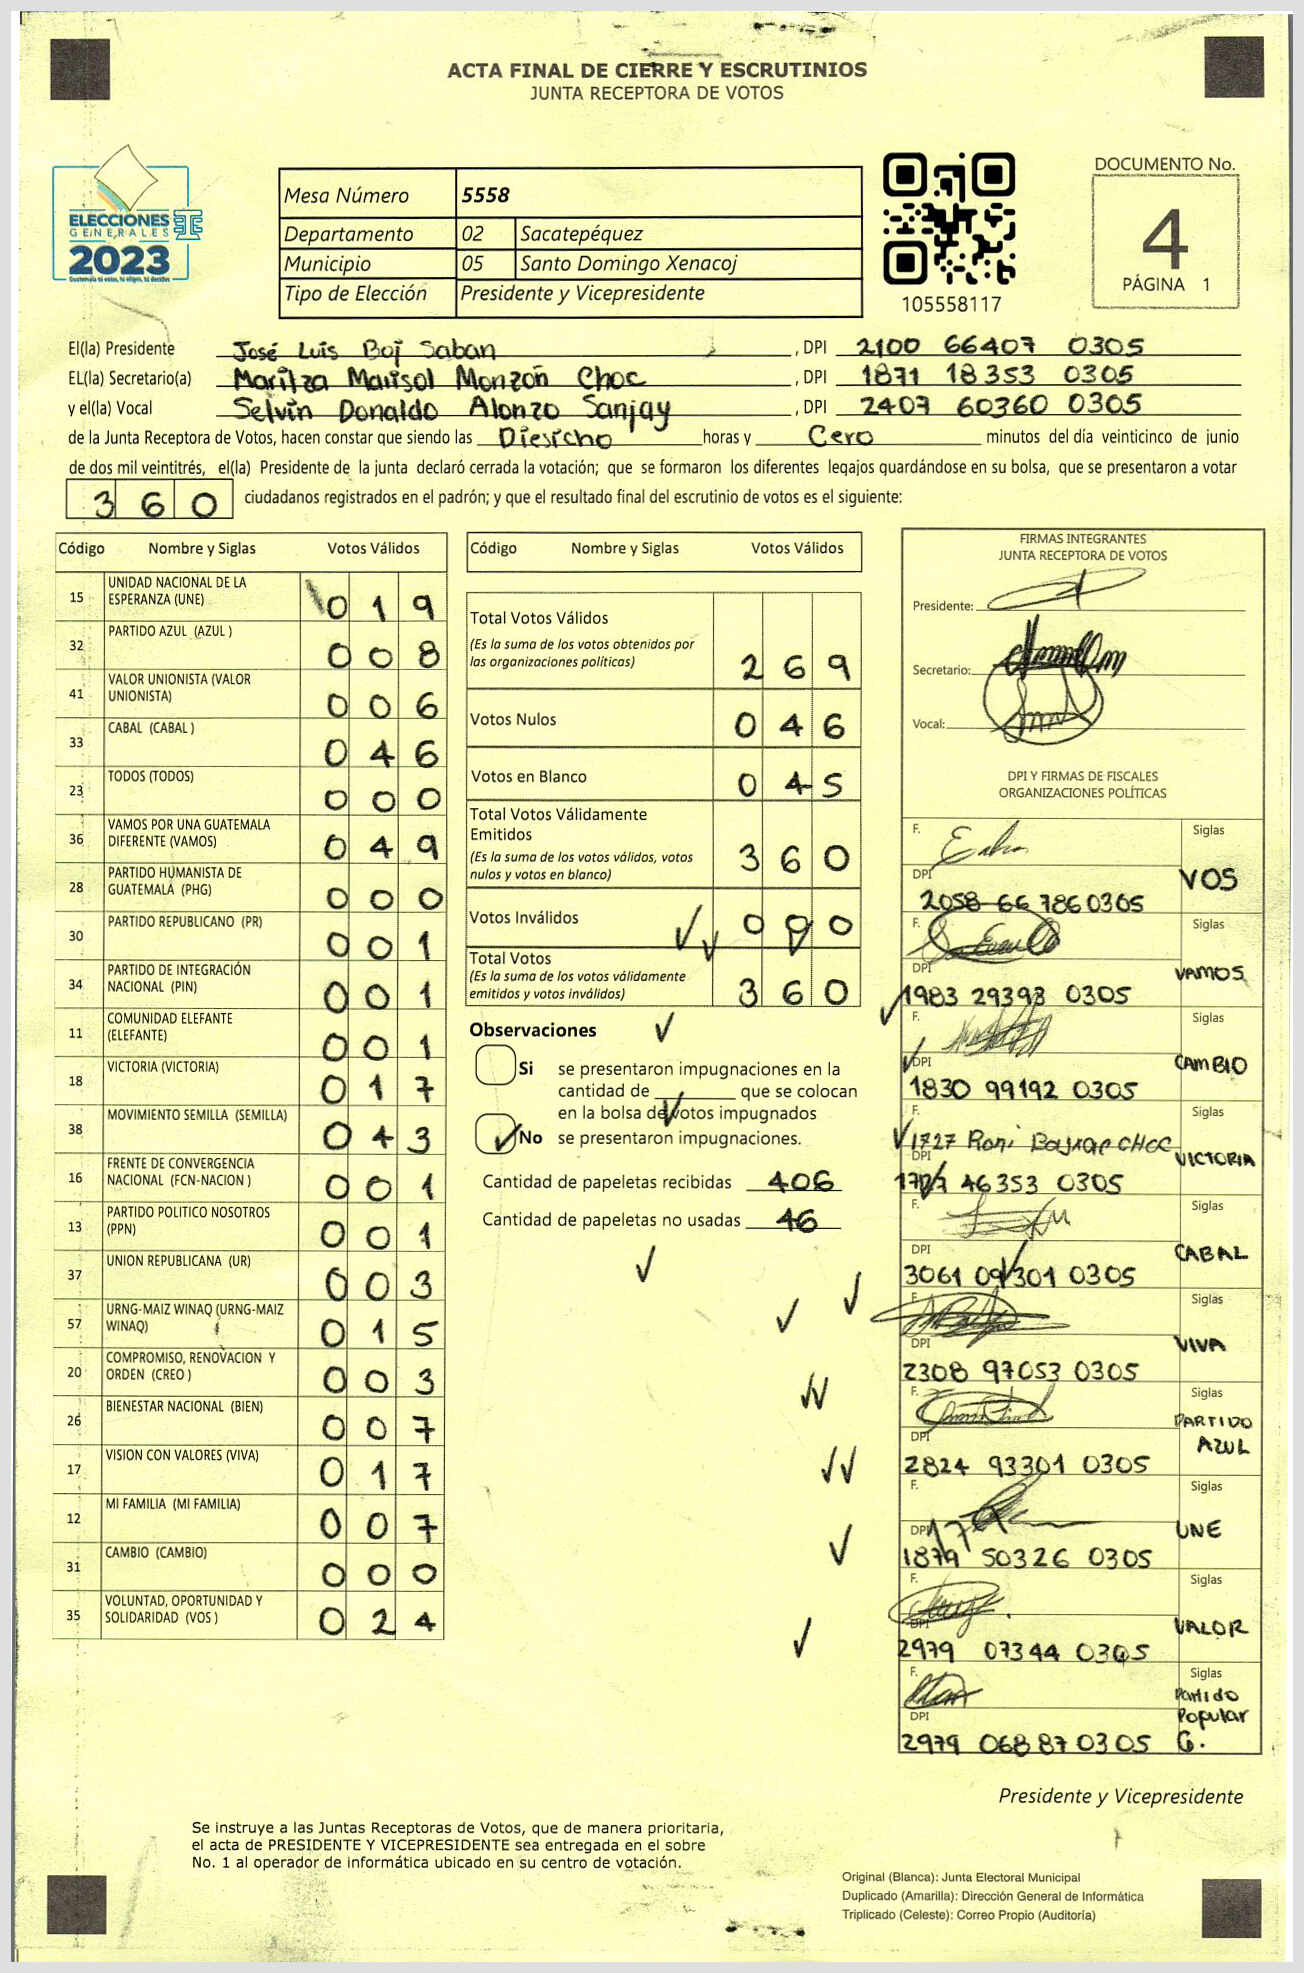 ACTA FINAL DE CIERRE Y ESCRUTINIOS
JUNTA RECEPTORA DE VOTOS
ELECCIONES
GENERALES
2023
Guatemala tú votas, tú eliges, tú decides
Mesa Número 5558
Departamento 02 Sacatepéquez
Municipio 05 Santo Domingo Xenacoj
Tipo de Elección Presidente y Vicepresidente
105558117
DOCUMENTO No.
4
PÁGINA 1
El(la) Presidente José Luis Boj Saban , DPI 2100 66407 0305
EL(la) Secretario(a) Maritza Marisol Monzón Choc , DPI 1871 18353 0305
y el(la) Vocal Selvin Donaldo Alonzo Sanjay , DPI 2407 60360 0305
de la Junta Receptora de Votos, hacen constar que siendo las Diesicho horas y Cero minutos del día veinticinco de junio
de dos mil veintitrés, el(la) Presidente de la junta declaró cerrada la votación; que se formaron los diferentes legajos guardándose en su bolsa, que se presentaron a votar
360 ciudadanos registrados en el padrón; y que el resultado final del escrutinio de votos es el siguiente:
Código Nombre y Siglas Votos Válidos
15 UNIDAD NACIONAL DE LA ESPERANZA (UNE) 019
32 PARTIDO AZUL (AZUL ) 008
41 VALOR UNIONISTA (VALOR UNIONISTA) 006
33 CABAL (CABAL ) 046
23 TODOS (TODOS) 000
36 VAMOS POR UNA GUATEMALA DIFERENTE (VAMOS) 049
28 PARTIDO HUMANISTA DE GUATEMALA (PHG) 000
30 PARTIDO REPUBLICANO (PR) 001
34 PARTIDO DE INTEGRACIÓN NACIONAL (PIN) 001
11 COMUNIDAD ELEFANTE (ELEFANTE) 001
18 VICTORIA (VICTORIA) 017
38 MOVIMIENTO SEMILLA (SEMILLA) 043
16 FRENTE DE CONVERGENCIA NACIONAL (FCN-NACION ) 001
13 PARTIDO POLITICO NOSOTROS (PPN) 001
37 UNION REPUBLICANA (UR) 003
57 URNG-MAIZ WINAQ (URNG-MAIZ WINAQ) 015
20 COMPROMISO, RENOVACION Y ORDEN (CREO ) 003
26 BIENESTAR NACIONAL (BIEN) 007
17 VISION CON VALORES (VIVA) 017
12 MI FAMILIA (MI FAMILIA) 007
31 CAMBIO (CAMBIO) 000
35 VOLUNTAD, OPORTUNIDAD Y SOLIDARIDAD (VOS ) 024
Código Nombre y Siglas Votos Válidos
Total Votos Válidos
(Es la suma de los votos obtenidos por
las organizaciones políticas) 269
Votos Nulos 046
Votos en Blanco 045
Total Votos Válidamente
Emitidos
(Es la suma de los votos válidos, votos
nulos y votos en blanco) 360
Votos Inválidos 000
Total Votos
(Es la suma de los votos válidamente
emitidos y votos inválidos) 360
Observaciones
Si se presentaron impugnaciones en la
cantidad de ________ que se colocan
en la bolsa de votos impugnados
No se presentaron impugnaciones.
Cantidad de papeletas recibidas 406
Cantidad de papeletas no usadas 46
FIRMAS INTEGRANTES
JUNTA RECEPTORA DE VOTOS
Presidente:
Secretario:
Vocal:
DPI Y FIRMAS DE FISCALES
ORGANIZACIONES POLÍTICAS
F. Siglas
DPI VOS
2058 66 786 0305
F. Siglas
DPI VAMOS
1983 29393 0305
F. Siglas
DPI CAMBIO
1830 99192 0305
F. Siglas
1727 Roni CHOC
DPI VICTORIA
1727 46353 0305
F. Siglas
DPI CABAL
3061 09301 0305
F. Siglas
DPI VIVA
2308 97053 0305
F. Siglas
DPI PARTIDO AZUL
2824 93301 0305
F. Siglas
DPI 179 UNE
1879 50326 0305
F. Siglas
DPI VALOR
2979 07344 0305
F. Siglas
DPI Partido Popular G.
2979 06887 0305
Presidente y Vicepresidente
Se instruye a las Juntas Receptoras de Votos, que de manera prioritaria,
el acta de PRESIDENTE Y VICEPRESIDENTE sea entregada en el sobre
No. 1 al operador de informática ubicado en su centro de votación.
Original (Blanca): Junta Electoral Municipal
Duplicado (Amarilla): Dirección General de Informática
Triplicado (Celeste): Correo Propio (Auditoría)